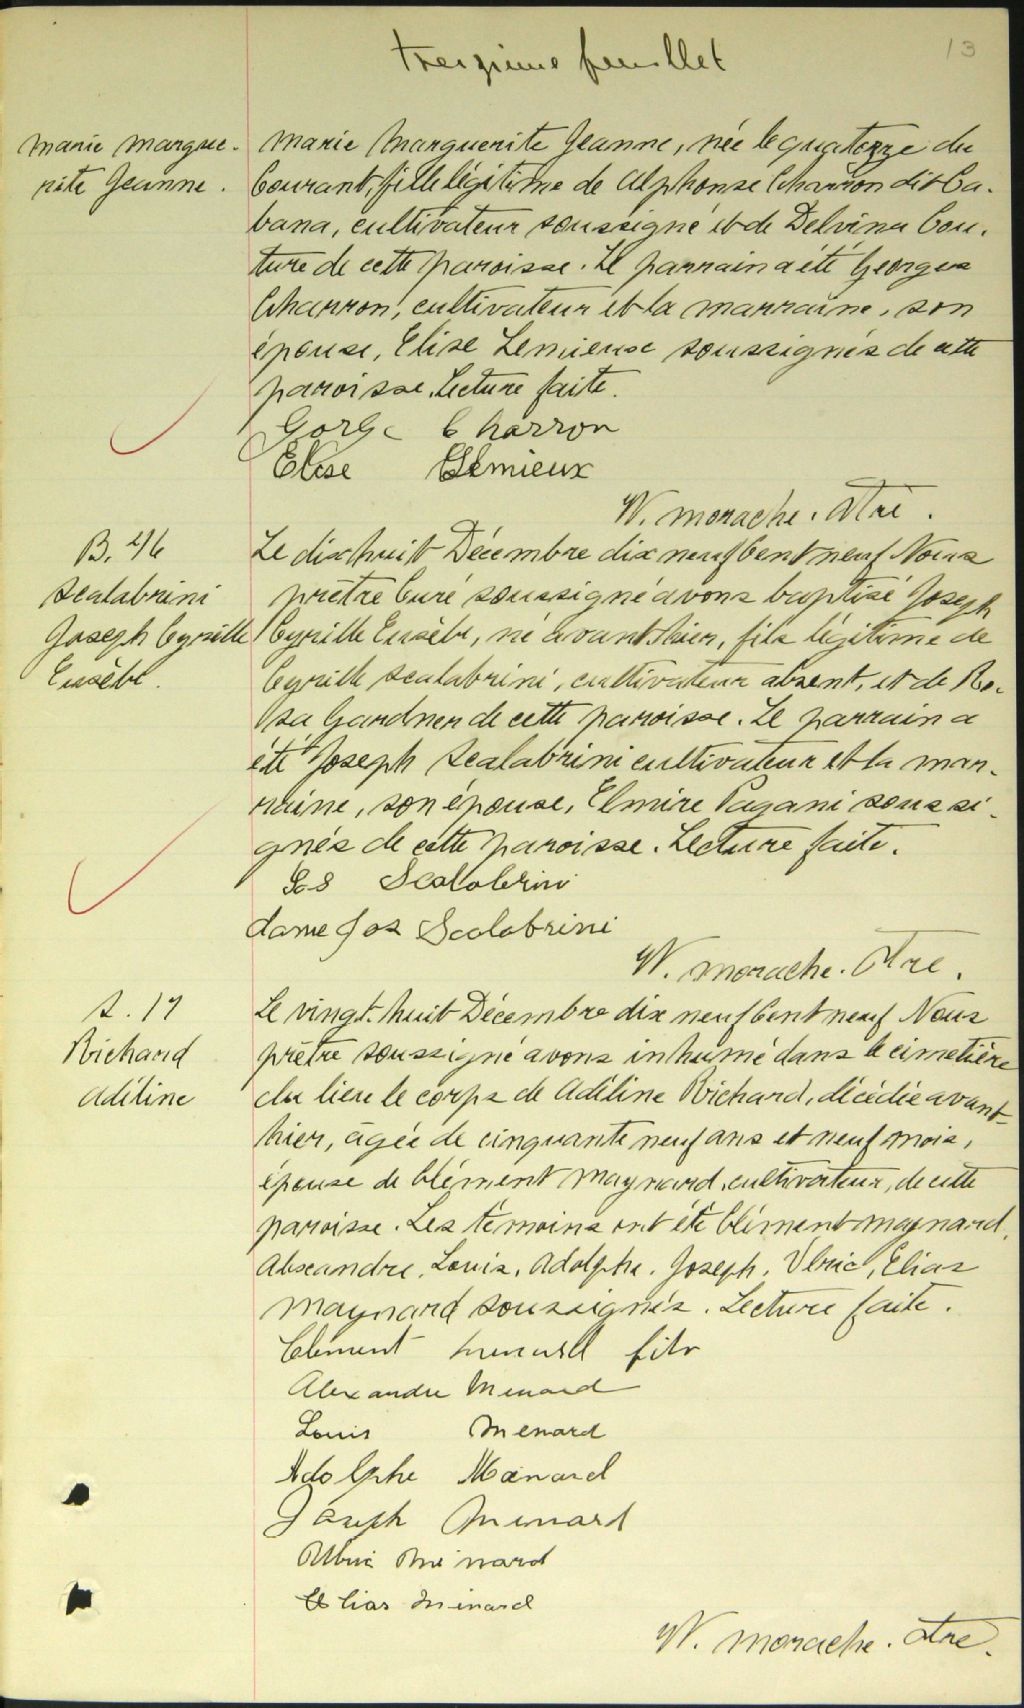 treizième feuillet
13
Marie Margue-
rite Jeanne.
Marie Marguerite Jeanne, née le quatorze du
Courant, fille légitime de Alphonse Charron dit Ca-
bana, cultivateur soussigné et de Delvina Cou-
ture de cette paroisse. Le parrain a été Georges
Charron, cultivateur et la marraine, son
épouse, Elise Lemieux soussignés de cette
paroisse. Lecture faite.
Gorge Charron
Elise Lemieux
W. Morache. Ptre.
B. 46
Scalabrini
Joseph Cyrille
Eusèbe.
Le dix huit Décembre dix neuf Cent neuf Nous
prêtre Curé soussigné avons baptisé Joseph
Cyrille Eusèbe, né avant hier, fils légitime de
Cyrille Scalabrini, cultivateur absent, et de Ro-
sa Gardner de cette paroisse. Le parrain a
été Joseph Scalabrini cultivateur et la mar-
raine, son épouse, Elmire Pagani soussi-
gnés de cette paroisse. Lecture faite.
Jos Scalabrini
dame Jos Scalabrini
W. Morache. Ptre.
S. 17
Richard
Adéline
Le vingt-huit Décembre dix neuf Cent neuf Nous
prêtre soussigné avons inhumé dans le cimetière
du lieu le corps de Adéline Richard, décédée avant-
hier, âgée de cinquante neuf ans et neuf mois,
épouse de Clément Maynard, cultivateur, de cette
paroisse. Les témoins ont été Clément Maynard,
Alexandre, Louis, Adolphe, Joseph, Ulric, Elias
Maynard soussignés. Lecture faite.
Clement menard fils
Alexandre Menard
Louis Menard
Adolphe Ménard
Joseph Menard
Ulric Ménard
Elias Ménard
W. Morache. Ptre.